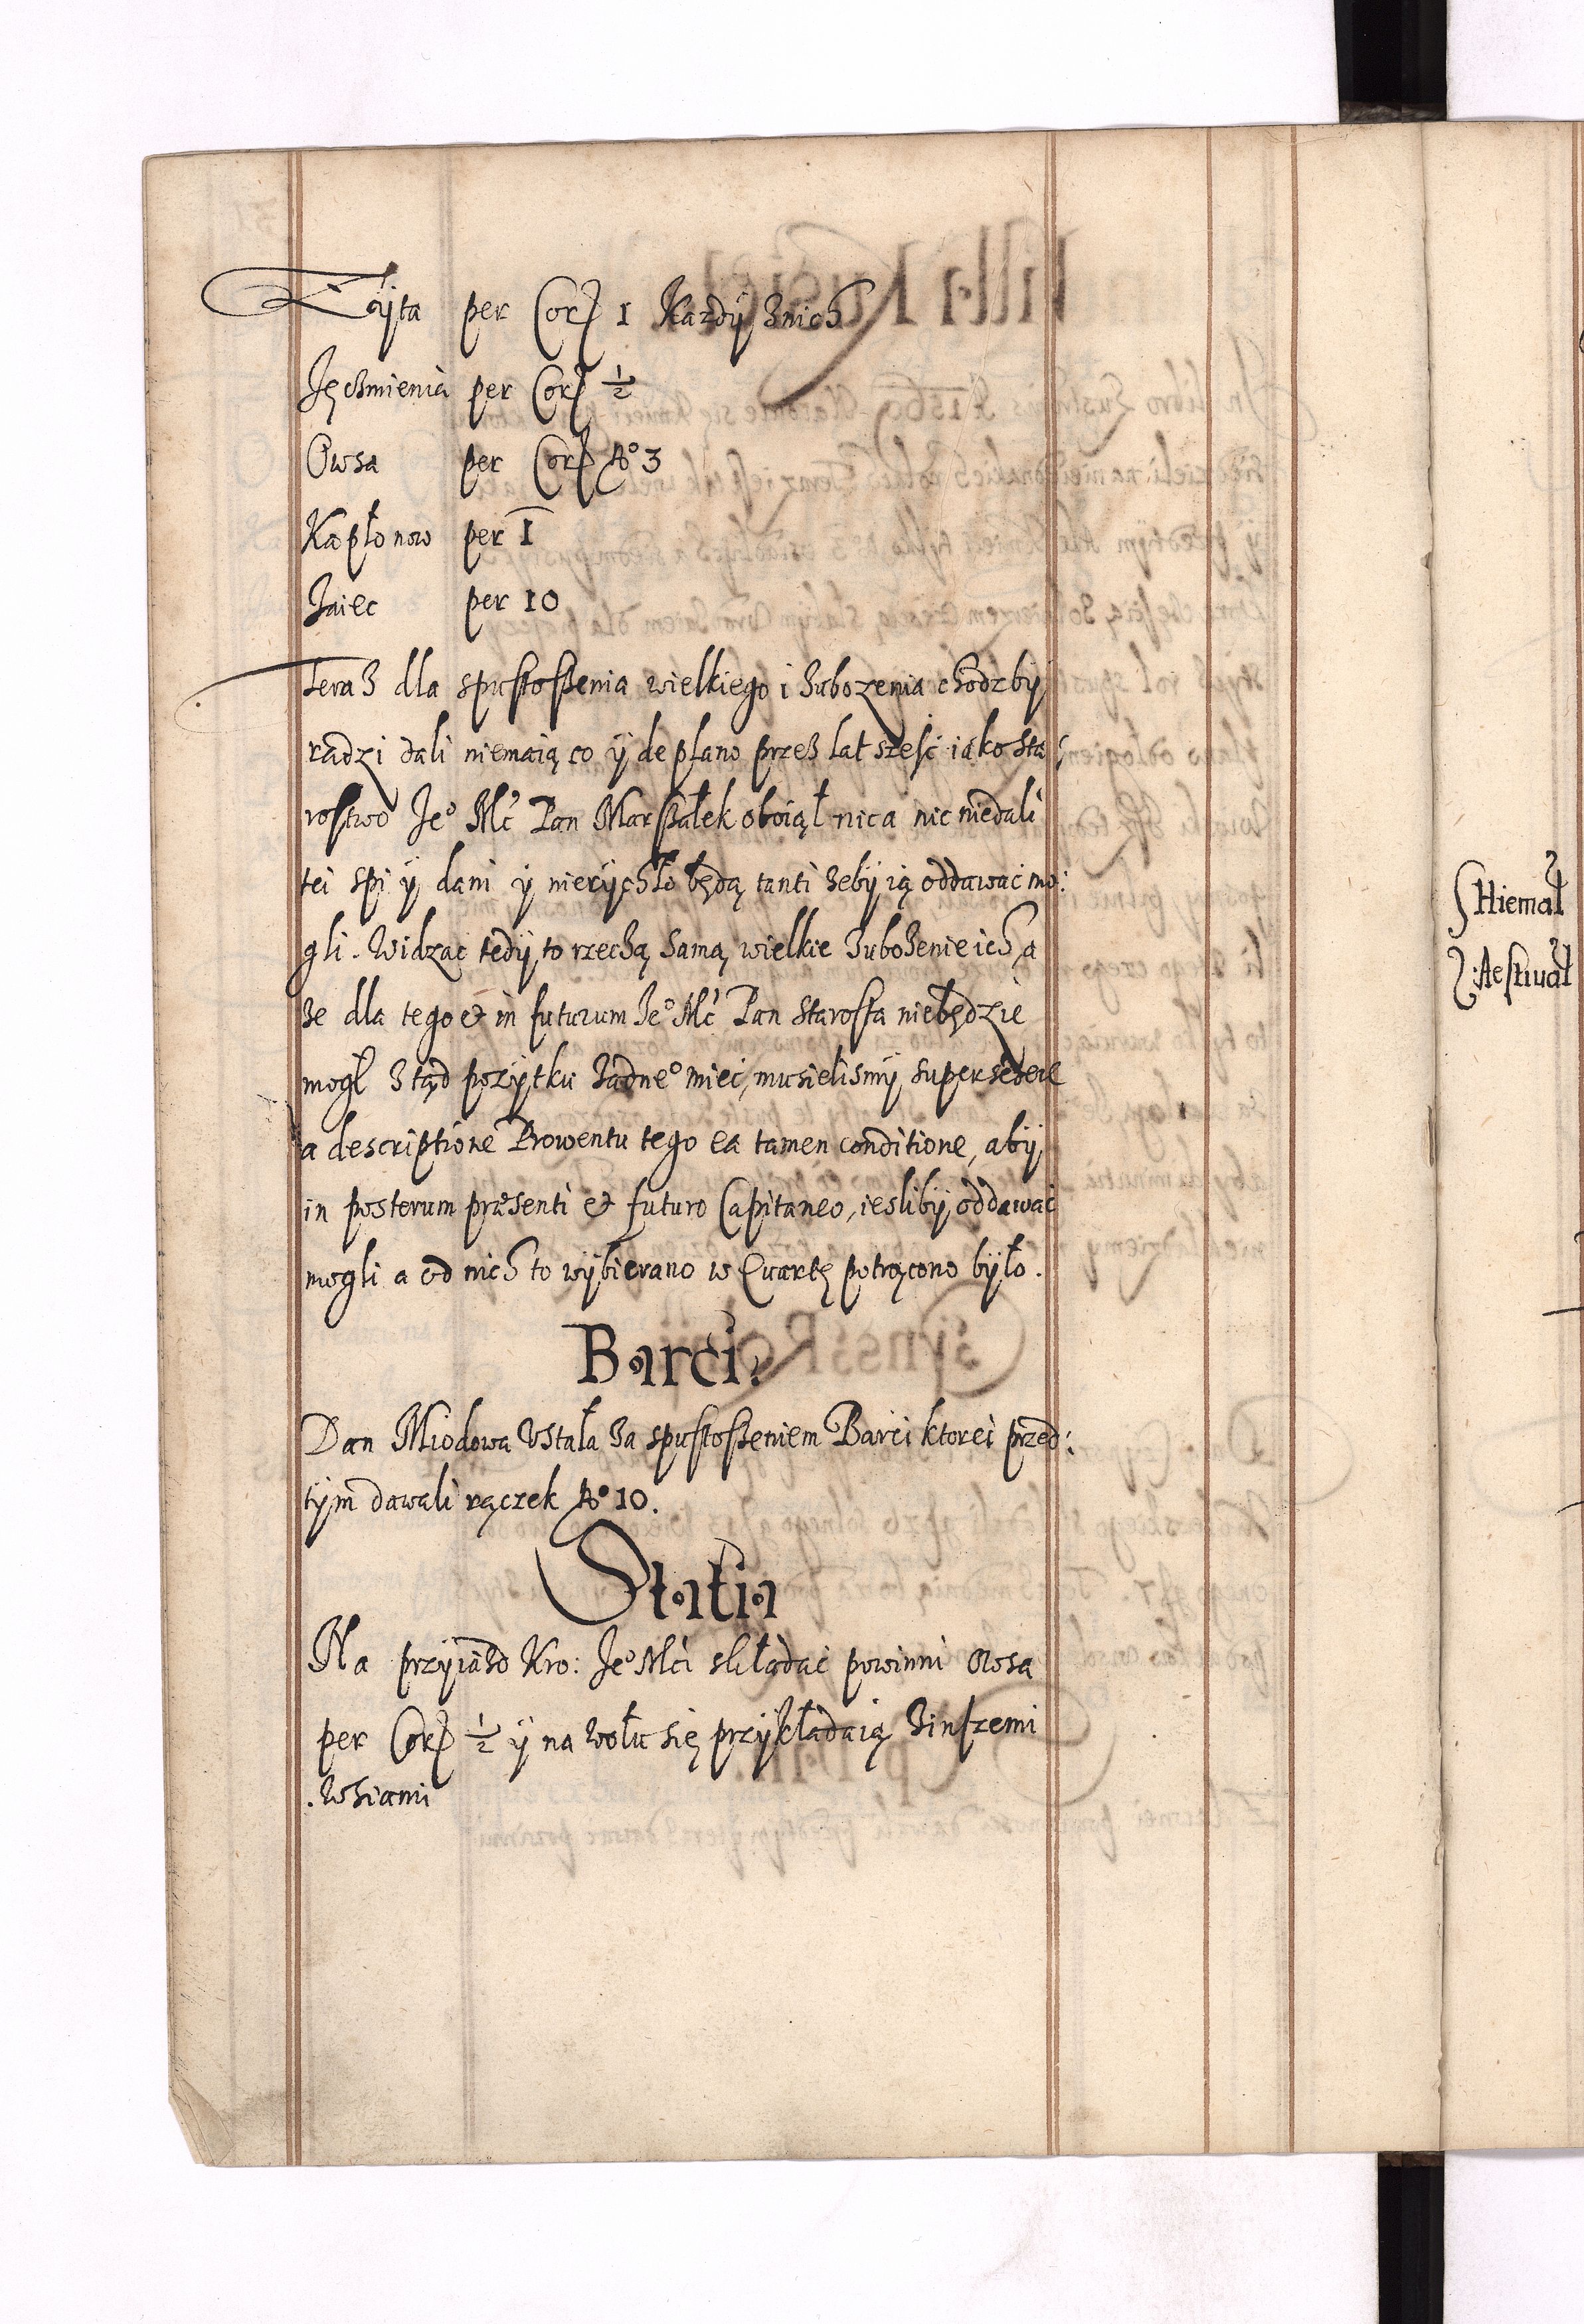 Zÿta per Cor: 1 Kazdÿ znich
Jęczmienia per Cor: ½
Owsa per Cor: No 3
Kapłonow per 1
Jaiec per 10
Teraz dla spustoszenia wielkiego i zubozenia chodzbÿ
radzi dali niemaią co ÿ de plano przez lat szesć iako Sta:
rostwo Jeo Mć Pan Marszałek obiął nic a nic niedali
tei spi: ÿ dani ÿ nierÿchło będą tanti zebÿ ią oddawac mo:
gli. Widząc tedÿ to rzeczą samą wielkie zubozenie ich a
ze dla tego et in futurum Jeo Mć Pan Starosta niebędzie
mogł ztąd pozÿtku zadneo miec, musielismÿ supersedere
a descriptione Prowentu tego ea tamen conditione, abÿ
in posterum præsenti et futuro Capitaneo, ieslibÿ oddawac
mogli a od nich to wÿbierano w Quartę potrącono bÿło.
Barci.
Dan Miodowa Ustała za spustoszeniem Barci ktorei przed:
tÿm dawali rączek No 10.
Statia
Na przÿiazd Kro: Jeo Mći składac powinni Owsa
per Cor: ½ ÿ na wołu się przÿkładaią zinszemi
.Wsiami
Hiemał
Aestiuał